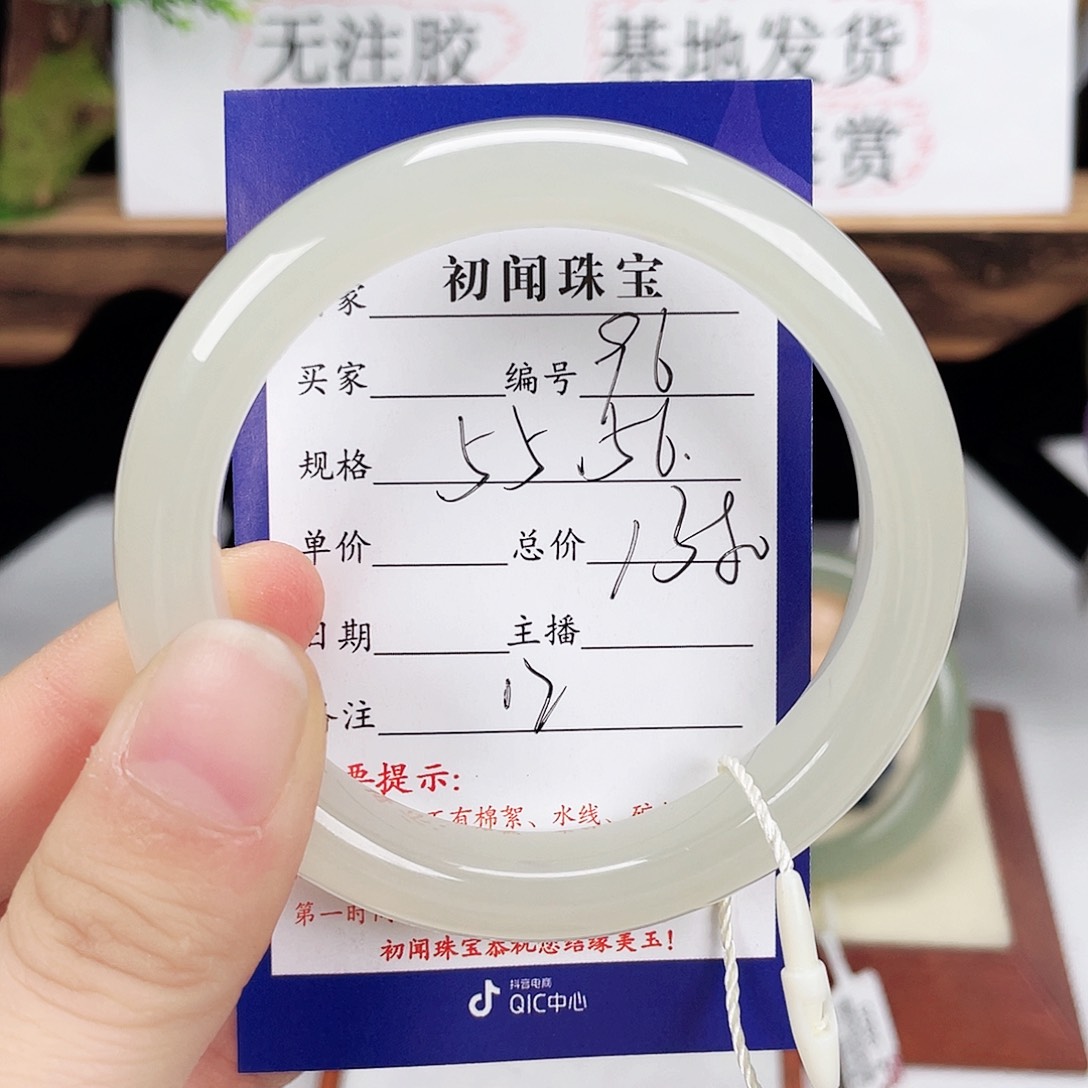 无注胶 基地发货
赏
初闻珠宝
家
买家 编号 96
规格 55 56.
单价 总价
日期 主播
备注
要提示:
有棉絮、水线、矿
第一时
初闻珠宝恭祝您结缘美玉!
抖音电商
QIC中心